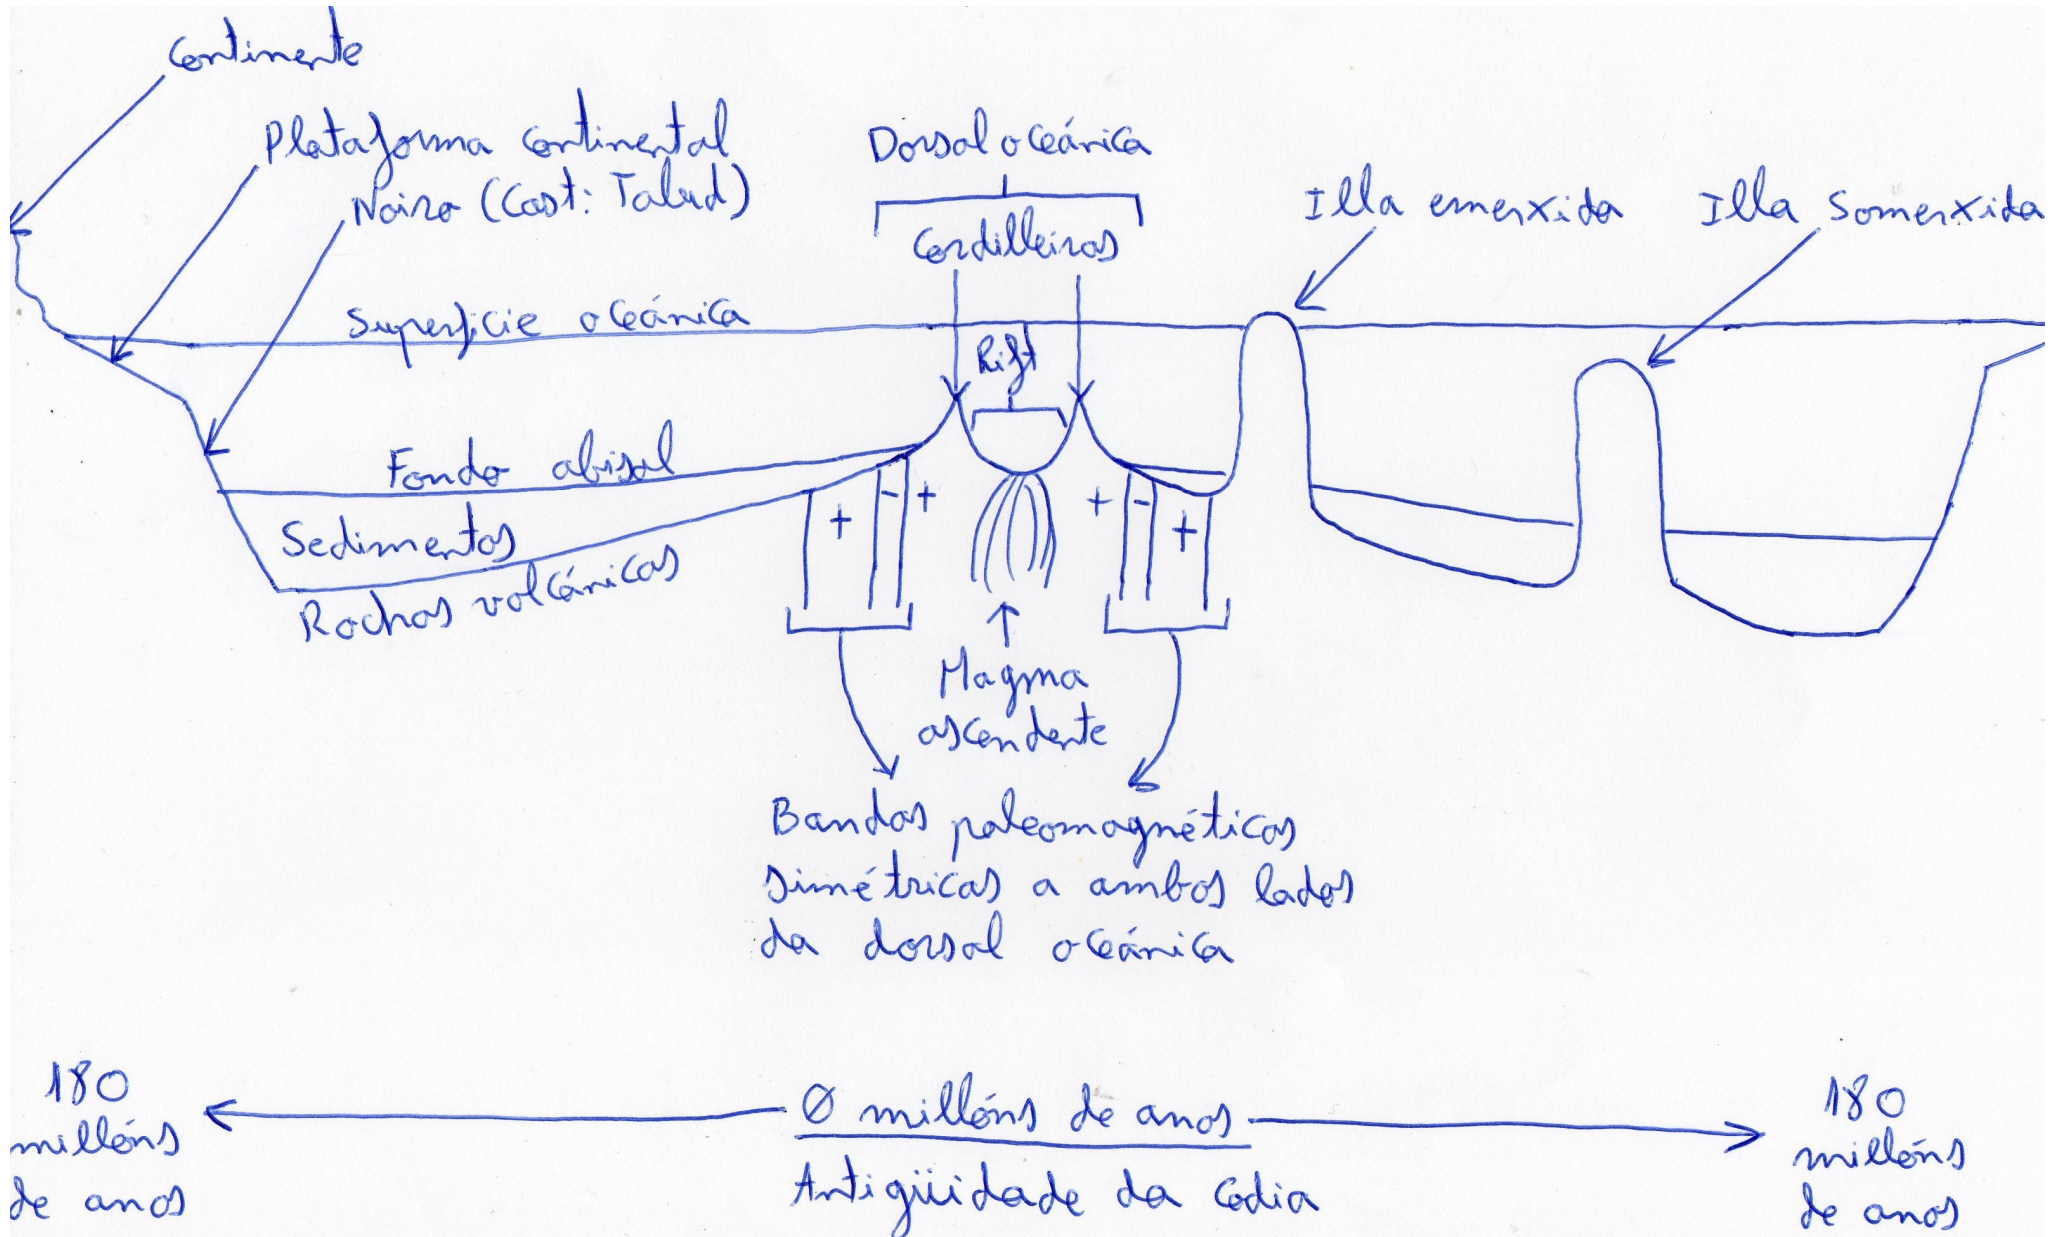 Continente
Plataforma continental
Noiro (Cast: Talud)
Dorsal oceánica
Cordilleiras
Illa emerxida
Illa somerxida
Superficie oceánica
Rift
Fondo abisal
Sedimentos
Rochas volcánicas
+ - +
+ - +
Magma
ascendente
Bandas paleomagnéticas
simétricas a ambos lados
da dorsal oceánica
180
millóns
de anos
0 millóns de anos
Antigüidade da codia
180
millóns
de anos